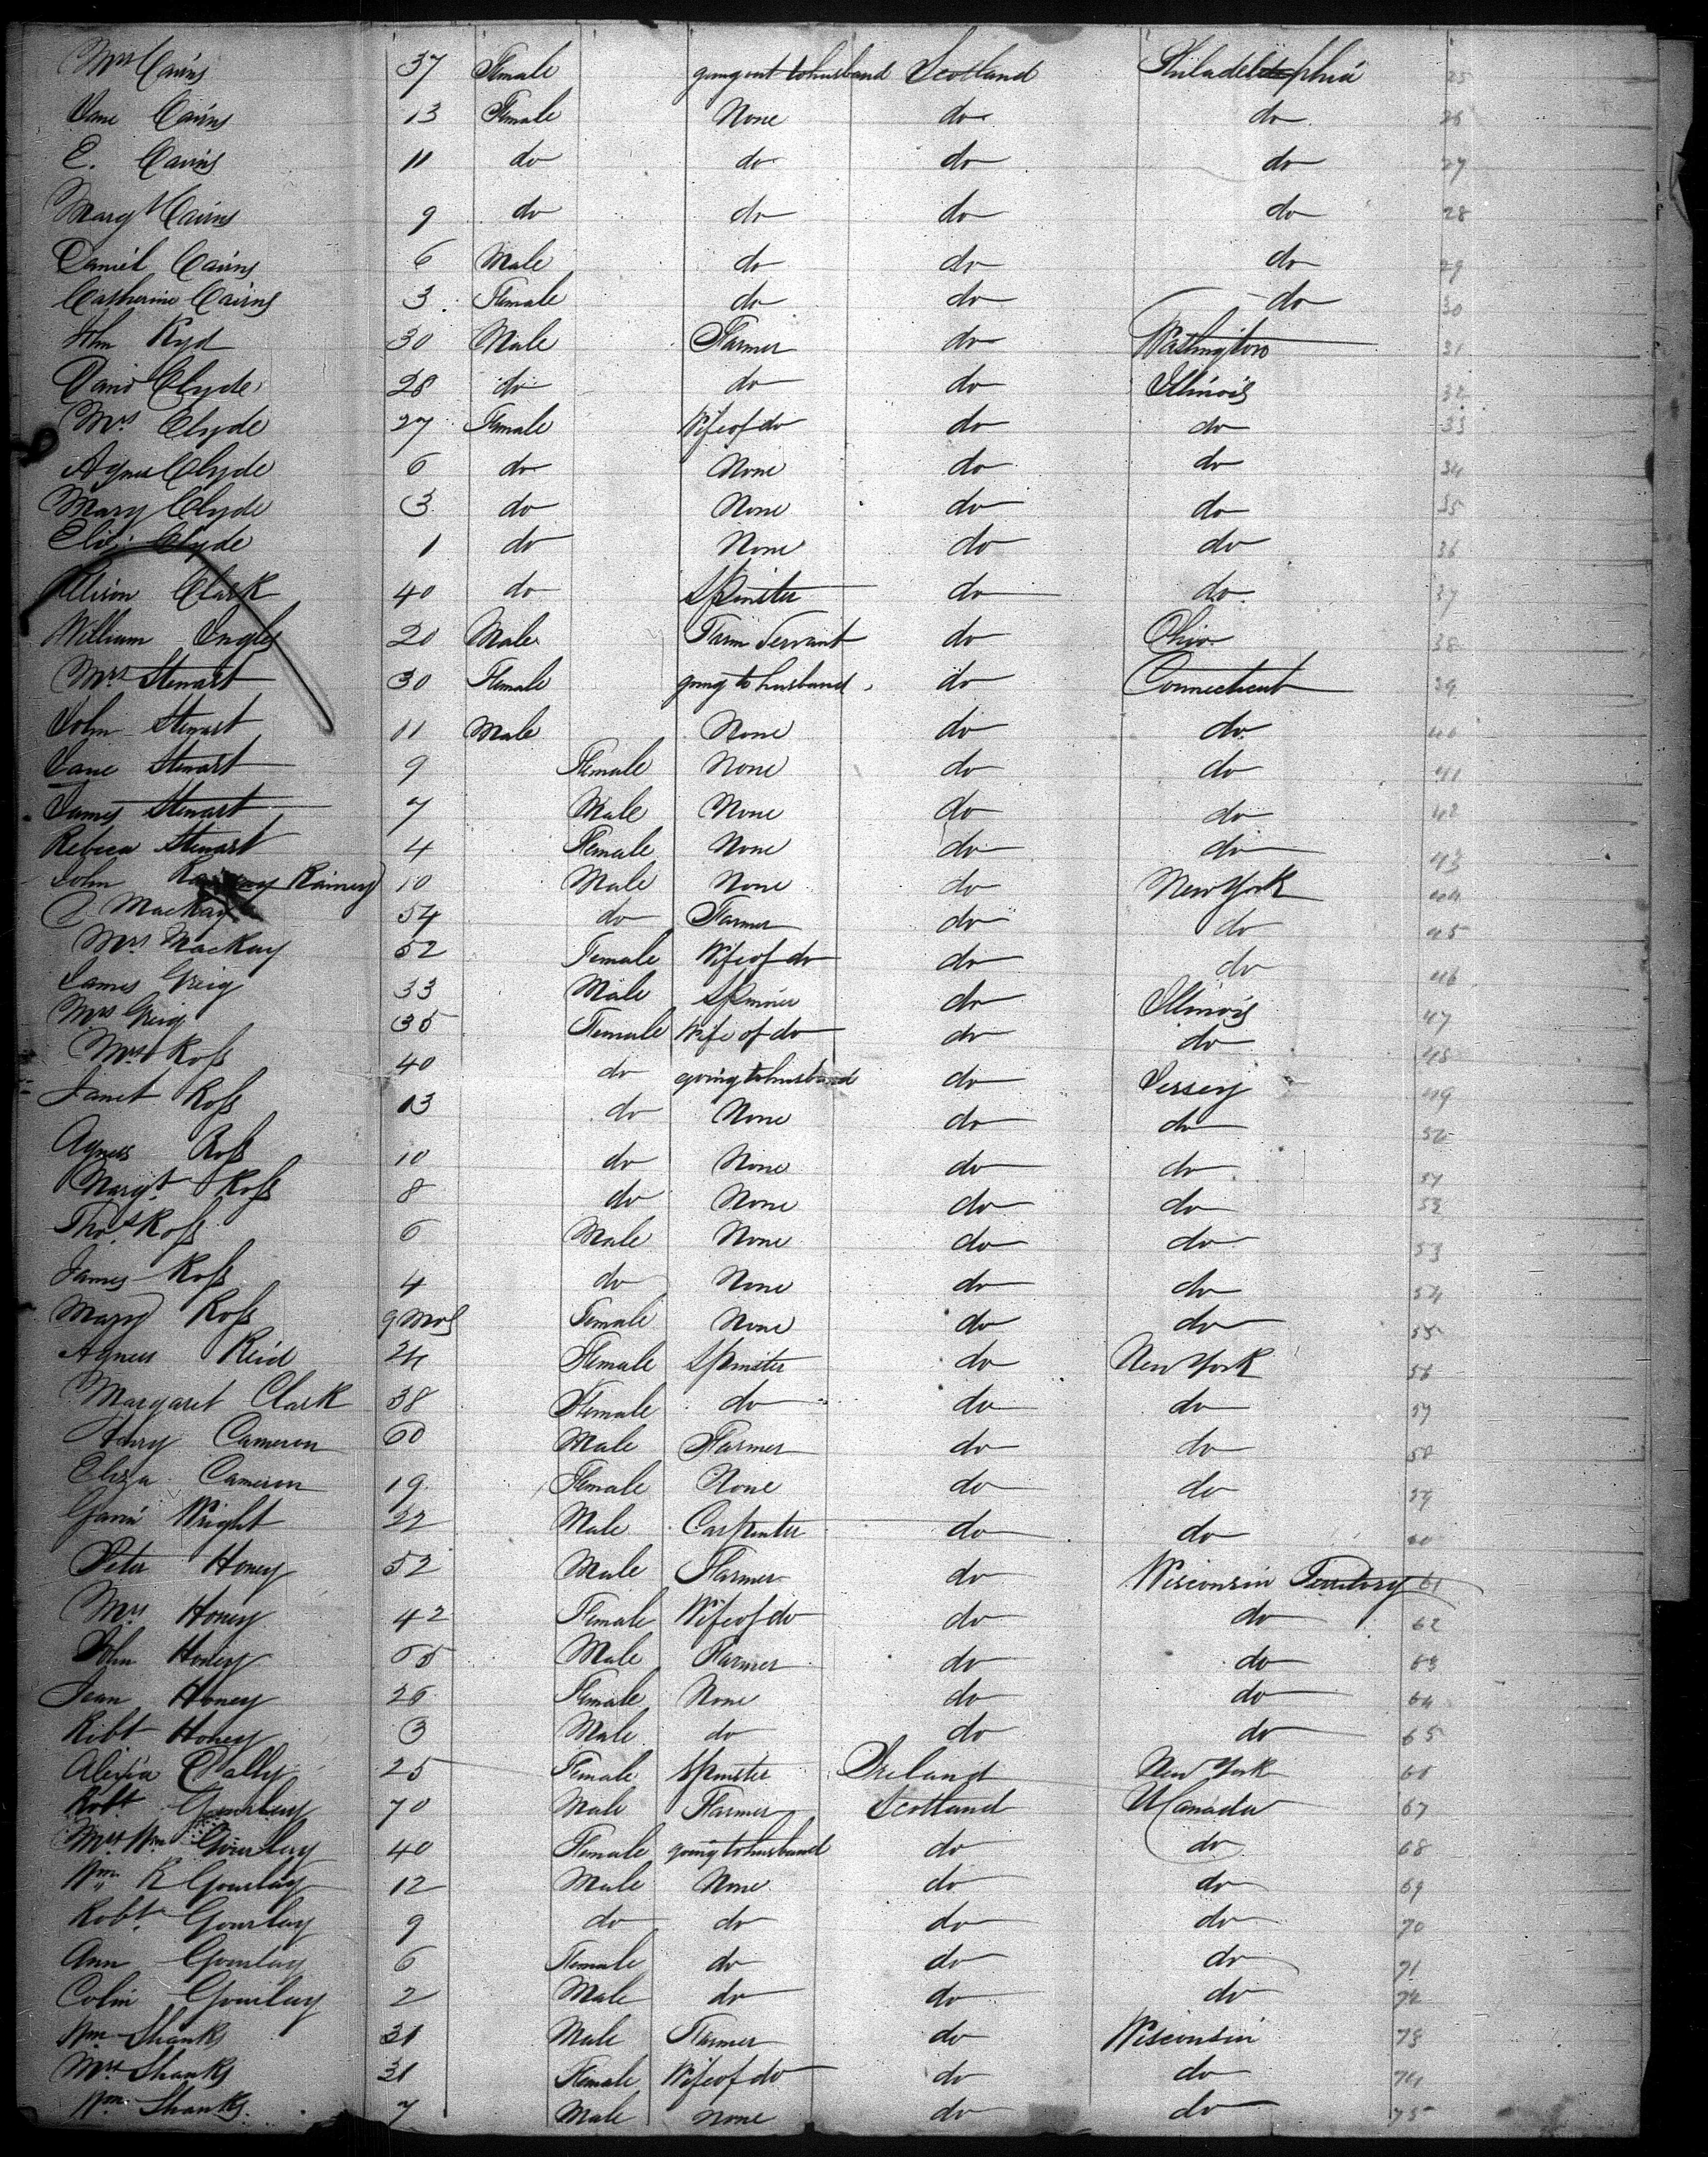 Mrs Cairns 37 Female going out to husband Scotland Philadelphia 25
Jane Cairns 13 Female None do do 26
E. Cairns 11 do do do do 27
Mary Cairns 9 do do do do 28
Daniel Cairns 6 Male do do do 29
Catherine Cairns 3 Female do do do 30
John Kyd 30 Male Farmer do Washington 31
David Clyde 28 do do do Illinois 32
Mrs Clyde 27 Female Wife of do do do 33
Agnes Clyde 6 do None do do 34
Mary Clyde 3 do None do do 35
Eliz. Clyde 1 do None do do 36
Alison Clark 40 do Spinster do do 37
William Ingles 20 Male Farm Servant do Ohio 38
Mrs Stewart 30 Female going to husband do Connecticut 39
John Stewart 11 Male None do do 40
Jane Stewart 9 Female None do do 41
James Stewart 7 Male None do do 42
Rebeca Stewart 4 Female None do do 43
John Rainey 10 Male None do New York 44
Mackay 54 do Farmer do do 45
Mrs Mackay 52 Female Wife of do do do 46
James Greig 33 Male Spinner do Illinois 47
Mrs Greig 35 Female Wife of do do do 48
Mrs Ross 40 do going to husband do Jersey 49
Janet Ross 13 do None do do 50
Agness Ross 10 do None do do 51
Margt Ross 8 do None do do 52
Thos Ross 6 Male None do do 53
James Ross 4 do None do do 54
Mary Ross 9 Mos Female None do do 55
Agness Reid 24 Female Spinster do New York 56
Margaret Clark 38 Female do do do 57
Henry Cameron 60 Male Farmer do do 58
Eliza Cameron 19 Female None do do 59
Gavin Wright 22 Male Carpenter do do 60
Peter Honey 52 Male Farmer do Wisconsin Territory 61
Mrs Honey 42 Female Wife of do do do 62
John Honey Male Farmer do do 63
Jean Honey 26 Female None do do 64
Robt Honey 3 Male do do do 65
25 Female Spinster Ireland New York 66
Robt Gourlay 70 Male Farmer Scotland U Canada 67
Mrs Wm Gourlay 40 Female going to husband do do 68
Wm R Gourlay 12 Male None do do 69
Robt Gourlay 9 do do do do 70
Ann Gourlay 6 Female do do do 71
Colin Gourlay 2 Male do do do 72
Wm Shanks 31 Male Farmer do Wisconsin 73
Mrs Shanks 31 Female Wife of do do do 74
Wm Shanks 7 Male None do do 75